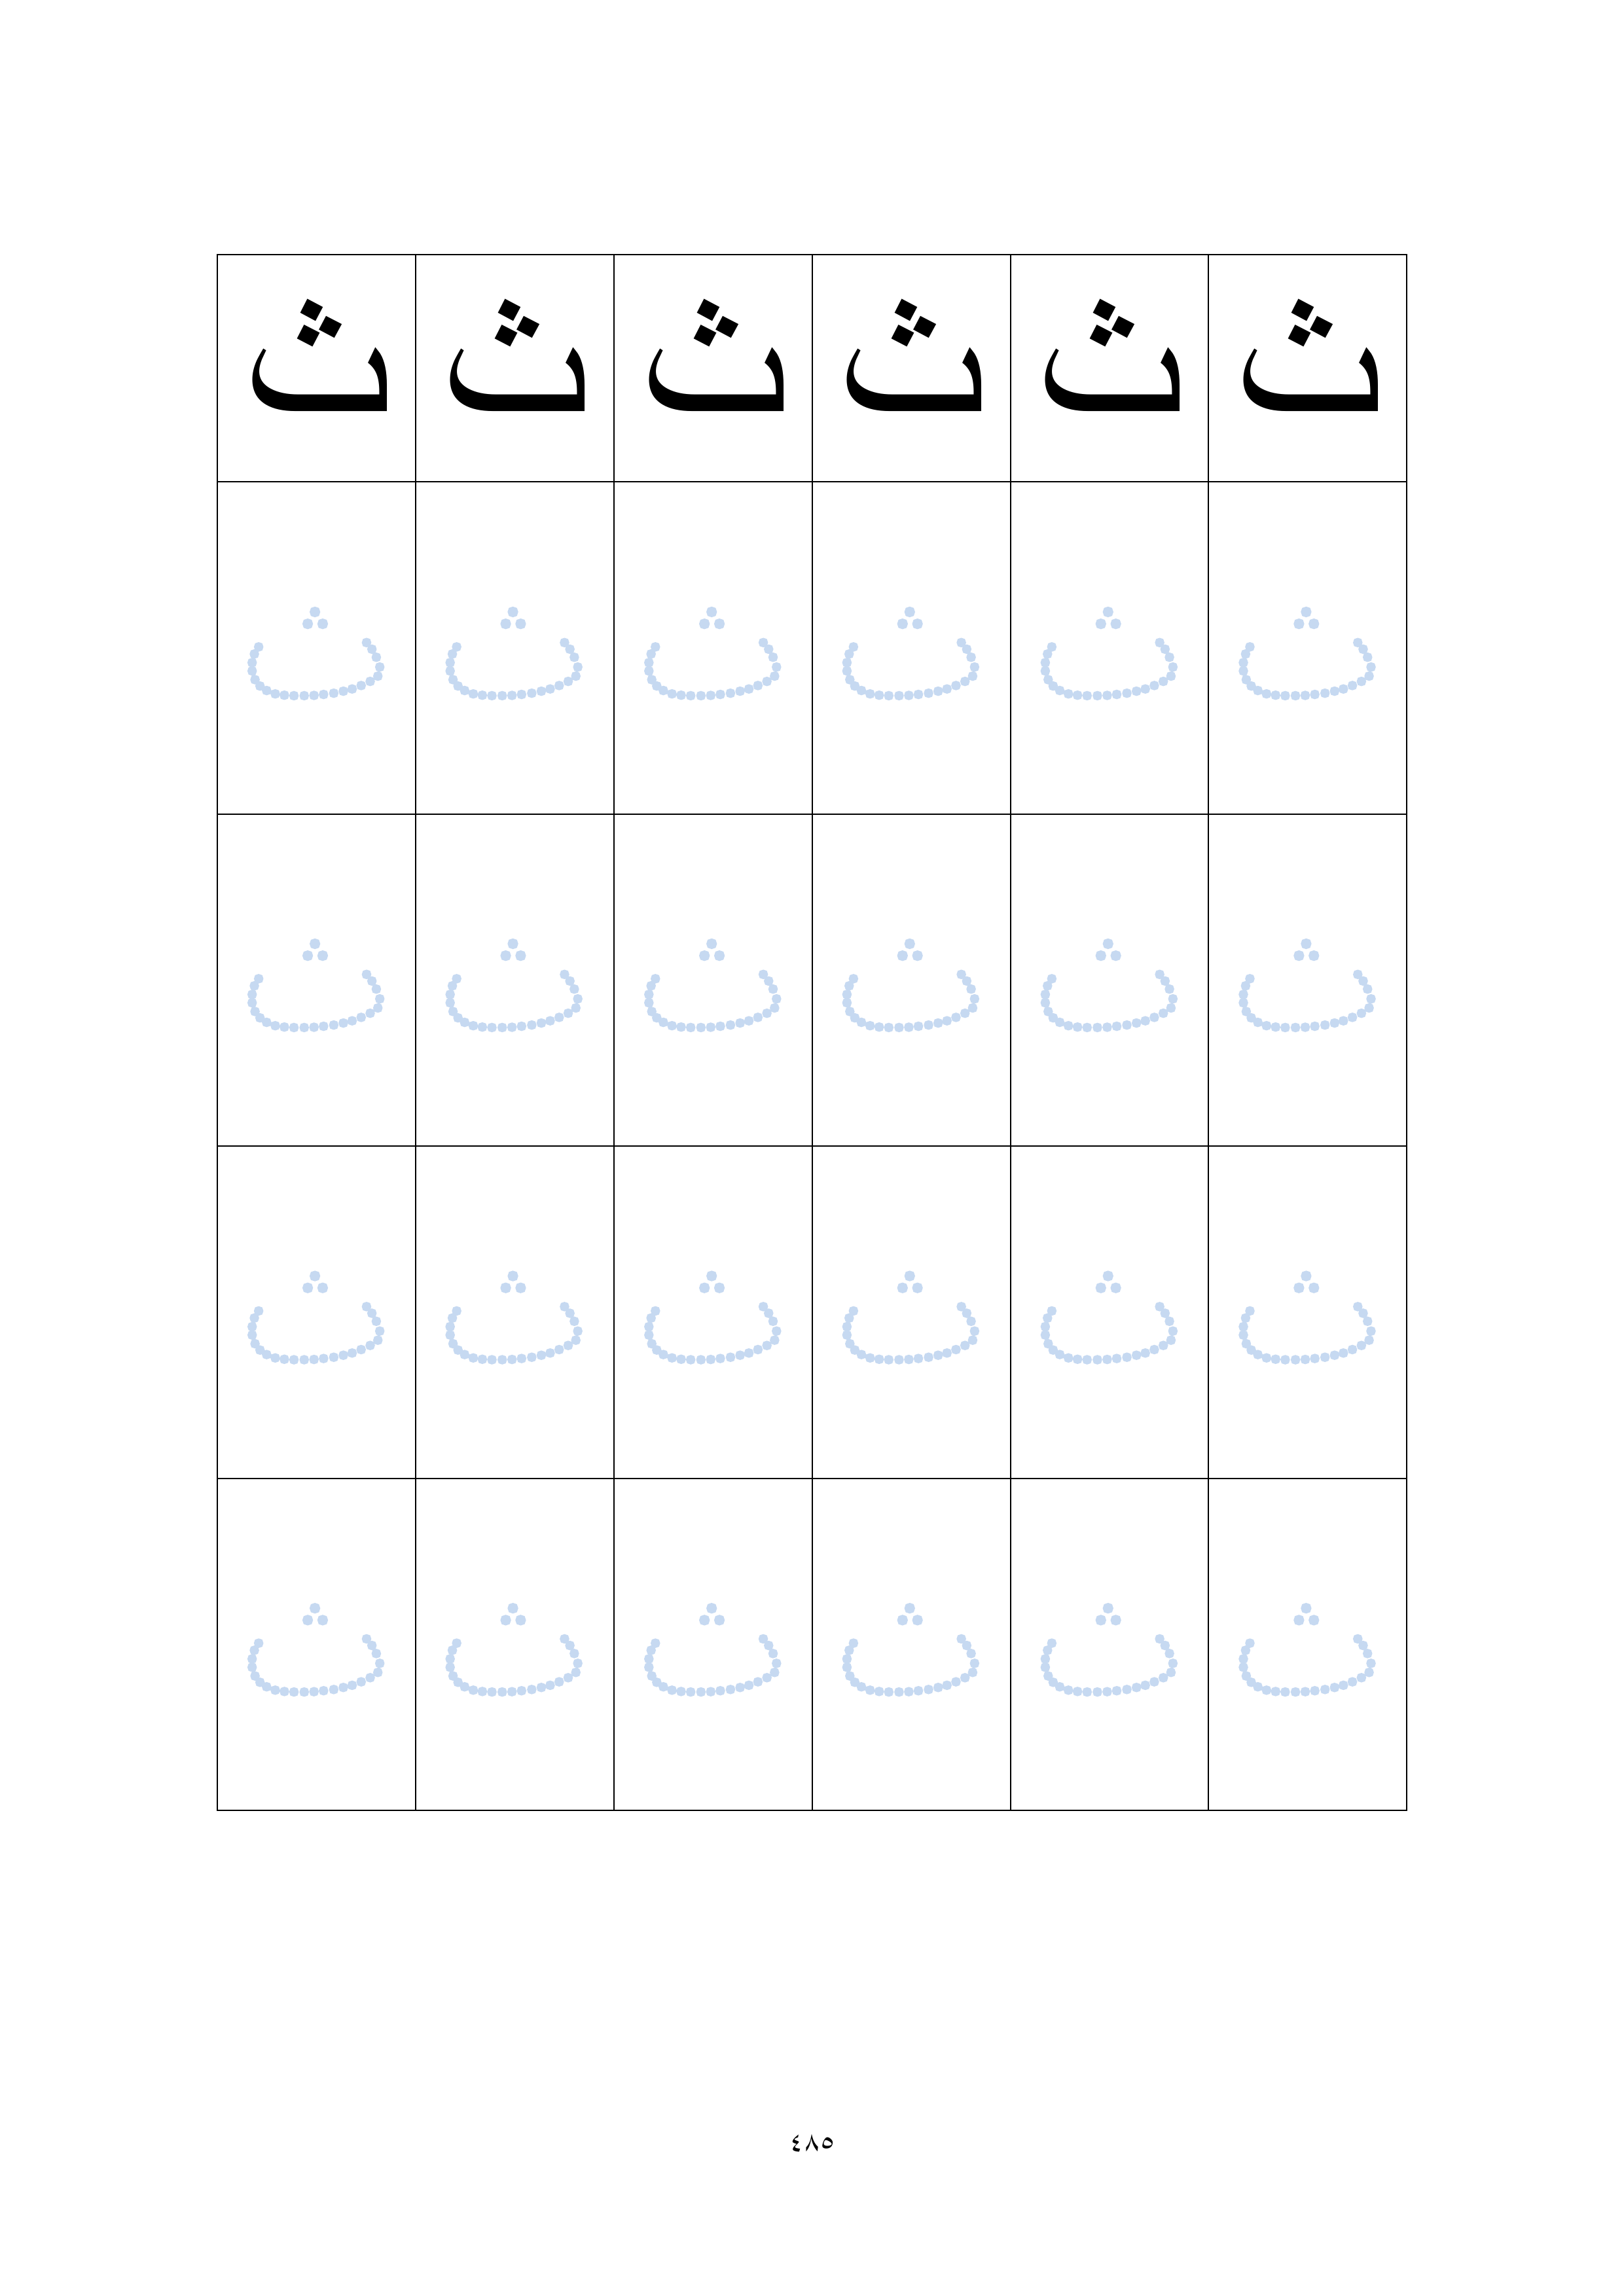 ث ث ث ث ث ث
ث ث ث ث ث ث
ث ث ث ث ث ث
ث ث ث ث ث ث
ث ث ث ث ث ث
٤٨٥